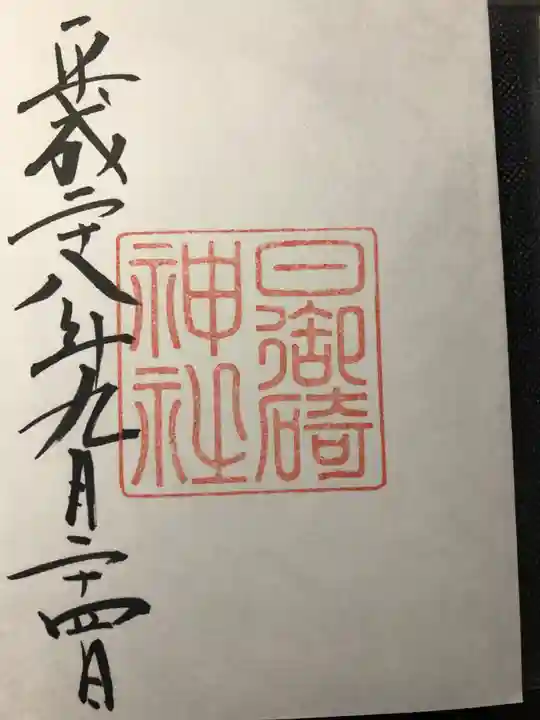 日御碕
神社
平成二十八年九月二十四日